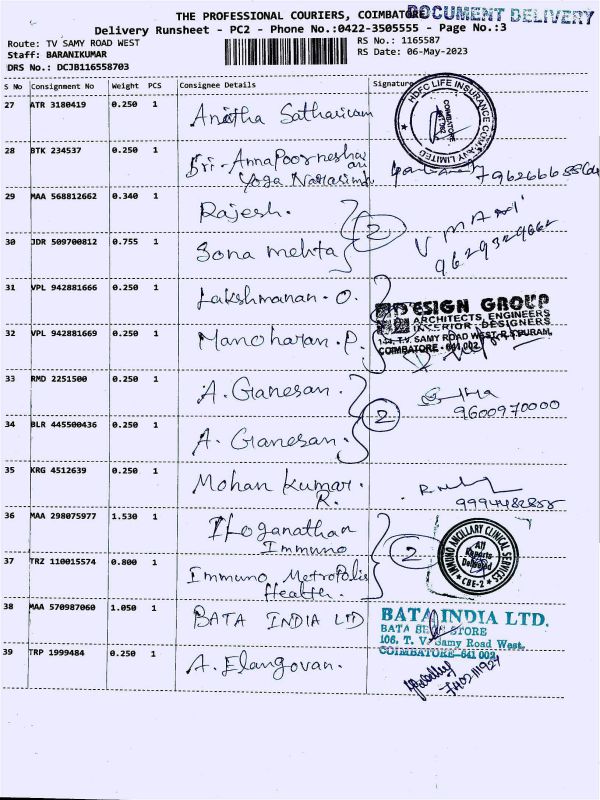 THE PROFESSIONAL COURIERS, COIMBATORE
DOCUMENT DELIVERY
Delivery Runsheet - PC2 - Phone No.:0422-3505555 - Page No.:3
Route: TV SAMY ROAD WEST
RS No.: 1165587
Staff: BARANIKUMAR
RS Date: 06-May-2023
DRS No.: DCJB116558703
S No Consignment No Weight PCS Consignee Details Signature
27 ATR 3180419 0.250 1 Anitha Satharivam
HDFC LIFE INSURANCE COMPANY LIMITED
COIMBATORE
28 BTK 234537 0.250 1 Sri-Annapoorneshwari
Yoga Narasimha
29 MAA 568812662 0.340 1 Rajesh.
2
30 JDR 509700812 0.755 1 Sona mehta
9629329662
31 VPL 942881666 0.250 1 Lakshmanan. O.
DESIGN GROUP
ARCHITECTS, ENGINEERS
INTERIOR DESIGNERS
144, T.V. SAMY ROAD WEST, R.S.PURAM,
COIMBATORE - 641 002
32 VPL 942881669 0.250 1 Manoharan. P.
33 RMD 2251500 0.250 1 A. Ganesan.
2
9600970000
34 BLR 445500436 0.250 1 A. Ganesan.
35 KRG 4512639 0.250 1 Mohan Kumar.
R.
9994482855
36 MAA 298075977 1.530 1 Iloganathan
Immuno
2
IMMUNO ANCILLARY CLINICAL SERVICES
All Reports Delivered
CBE-2
37 TRZ 110015574 0.800 1 Immuno Metropolis
Health.
38 MAA 570987060 1.050 1 BATA INDIA LTD
BATA INDIA LTD.
BATA STORE
106, T. V. Samy Road West,
COIMBATORE-641 002
39 TRP 1999484 0.250 1 A. Elangovan.